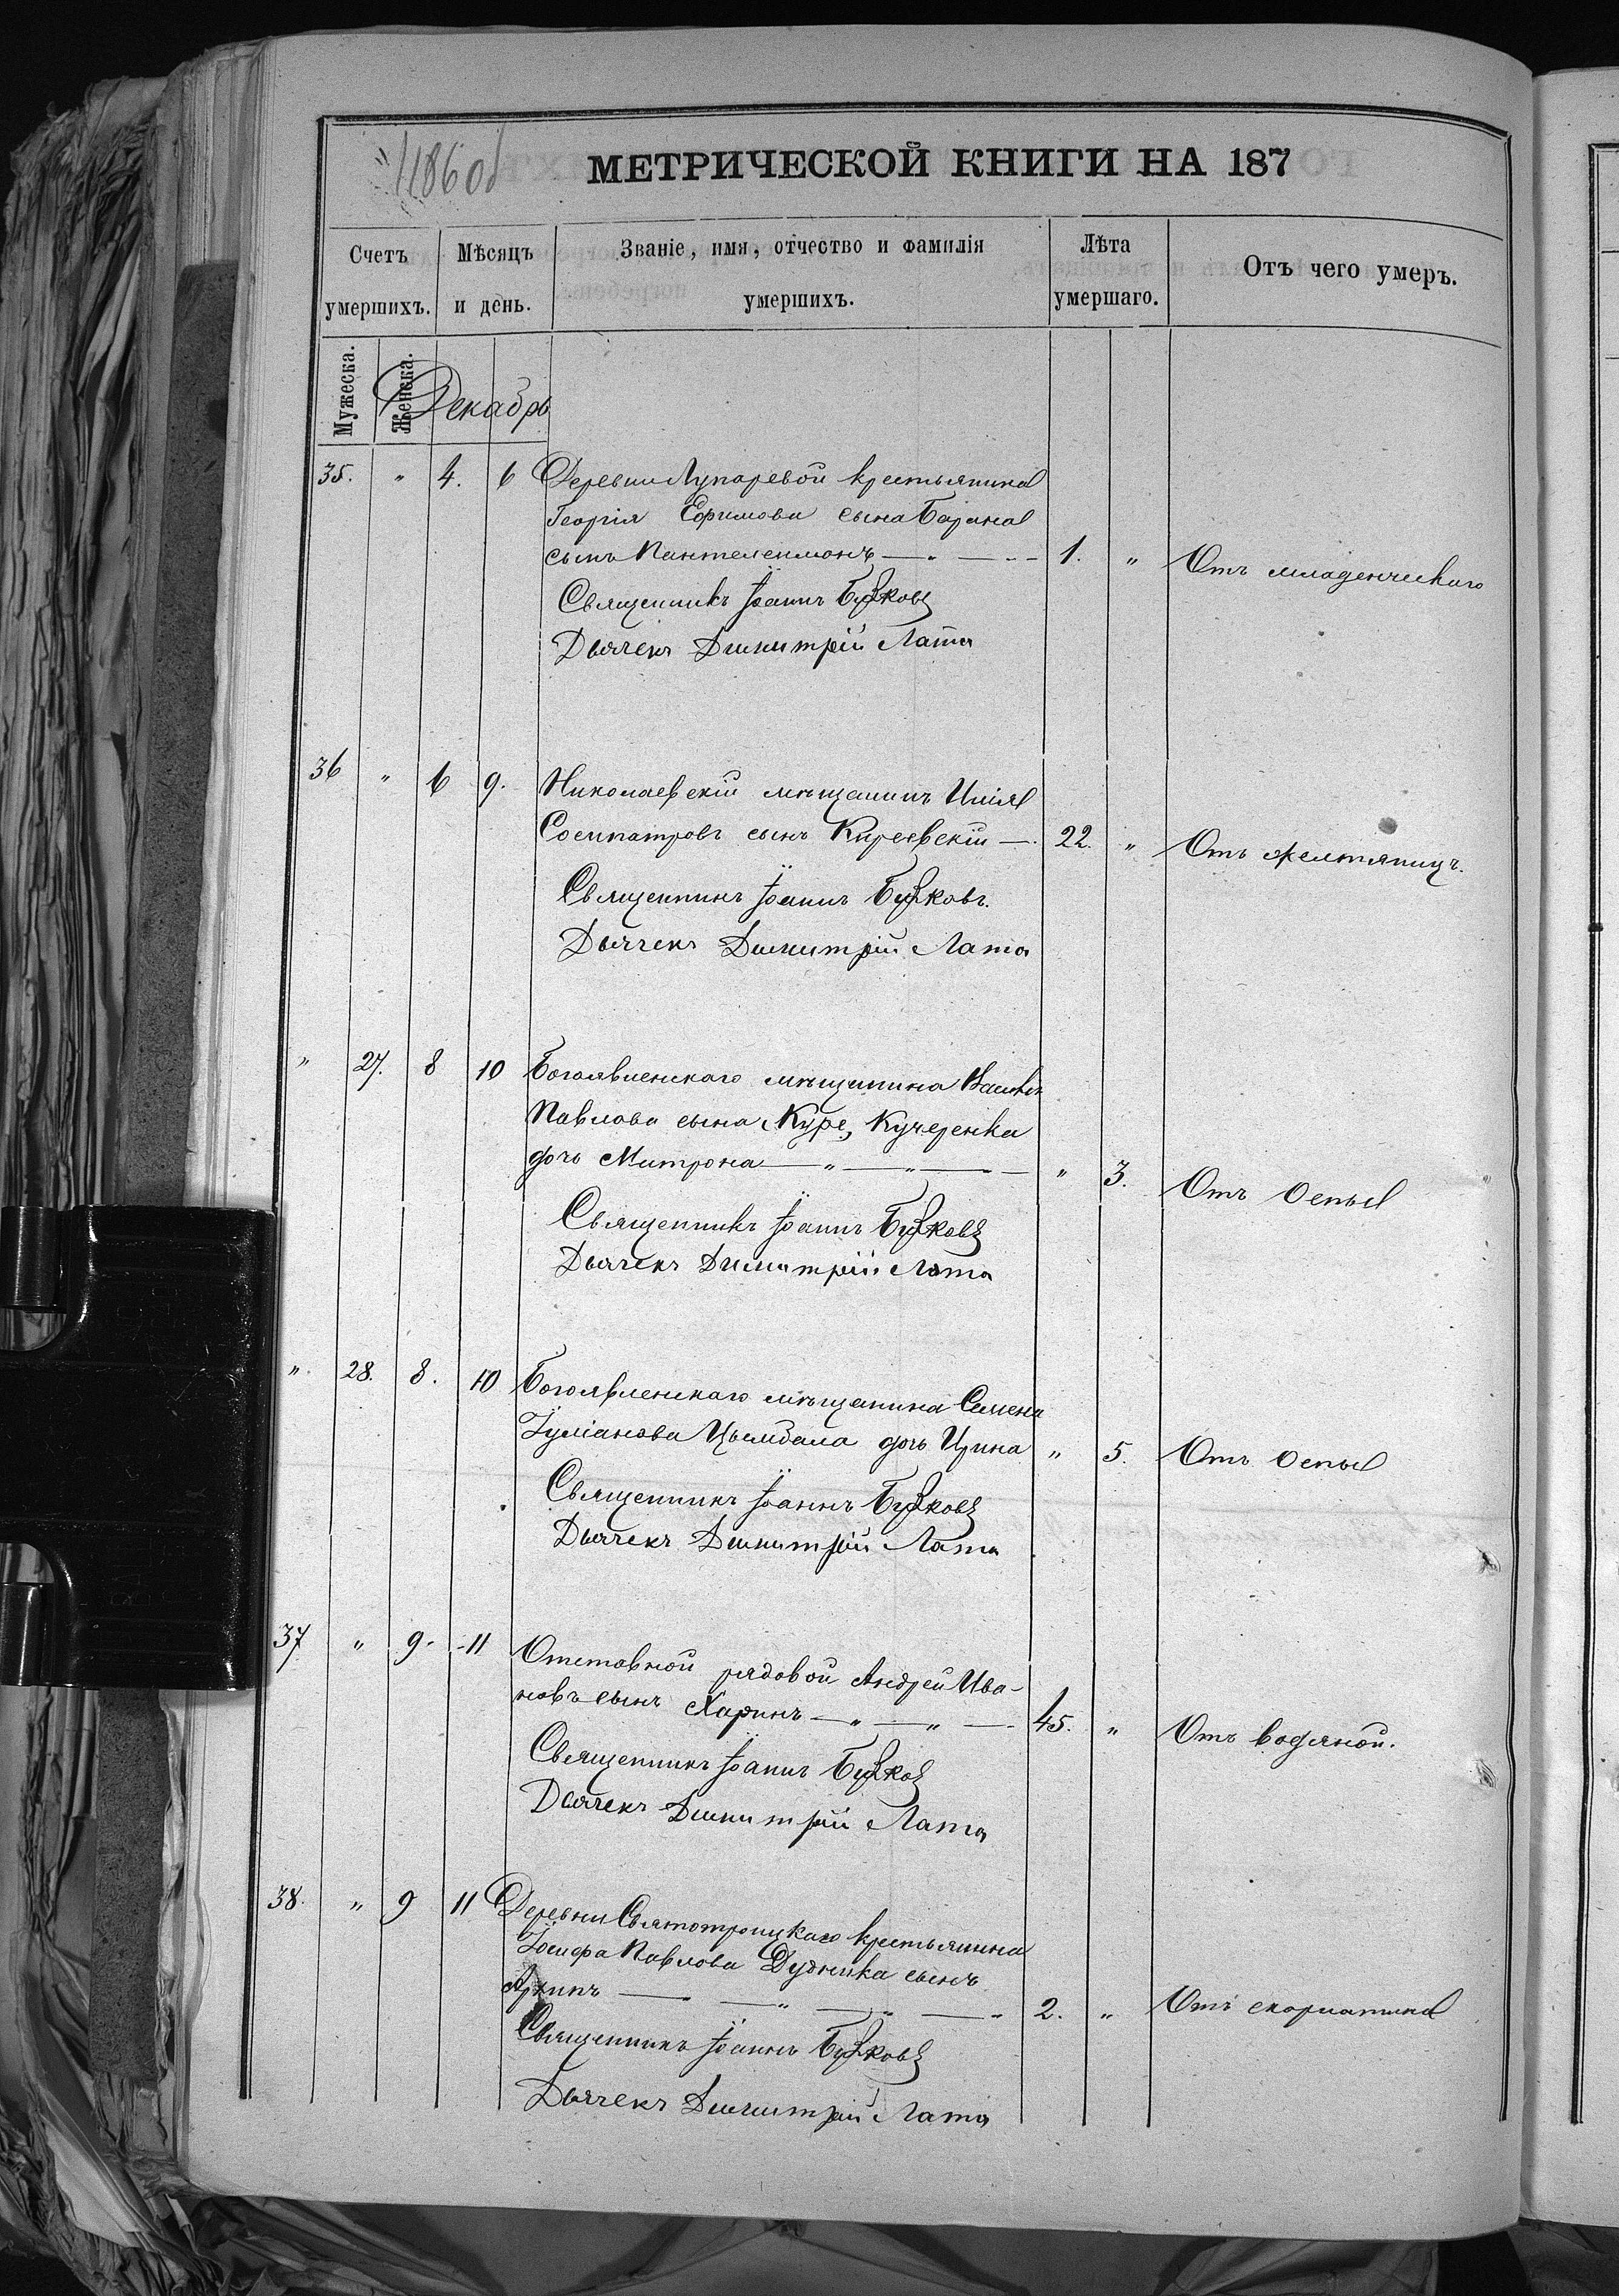 1186 об
МЕТРИЧЕСКОЙ КНИГИ НА 187
Счетъ умершихъ.
Мѣсяцъ и день.
Званіе, имя, отчество и фамилія умершихъ.
Лѣта умершаго.
Отъ чего умеръ.
Мужеска.
Женска.
Декабрь
35. " 4. 6 Деревни Лупаревой крестьянина
Георгія Ефимова сына Барана
сынъ Пантелеимонъ — " — 1. " Отъ младенческаго
Священникъ Іоаннъ
Дьячекъ Димитрій Лата
36 " 6 9. Николаевскій мѣщанинъ Илія
Сосипатровъ сынъ Киреевскій — 22. " Отъ желтяницъ.
Священникъ Іоаннъ
Дьячекъ Димитрій Лата
" 27. 8 10 Богоявленскаго мѣщанина
Павлова сына Куре, Кучеренка
дочь Митрона — " — " — " 3. Отъ Оспы
Священникъ Іоаннъ
Дьячекъ Димитрій Лата
" 28. 8. 10 Богоявленскаго мѣщанина Семена
Іуліанова Цымбала дочь Ирина " 5. Отъ Оспы
Священникъ Іоаннъ
Дьячекъ Димитрій Лата
37 " 9. 11 Отставной рядовой Андрей Ива-
новъ сынъ Харинъ — " — " — 45. " Отъ водяной.
Священникъ Іоаннъ
Дьячекъ Димитрій Лата
38. " 9 11 Деревни Святотроицкаго крестьянина
Іосифа Павлова Дудника сынъ
— " — " — " — " 2. " Отъ скарлатина
Священникъ Іоаннъ
Дьячекъ Димитрій Лата